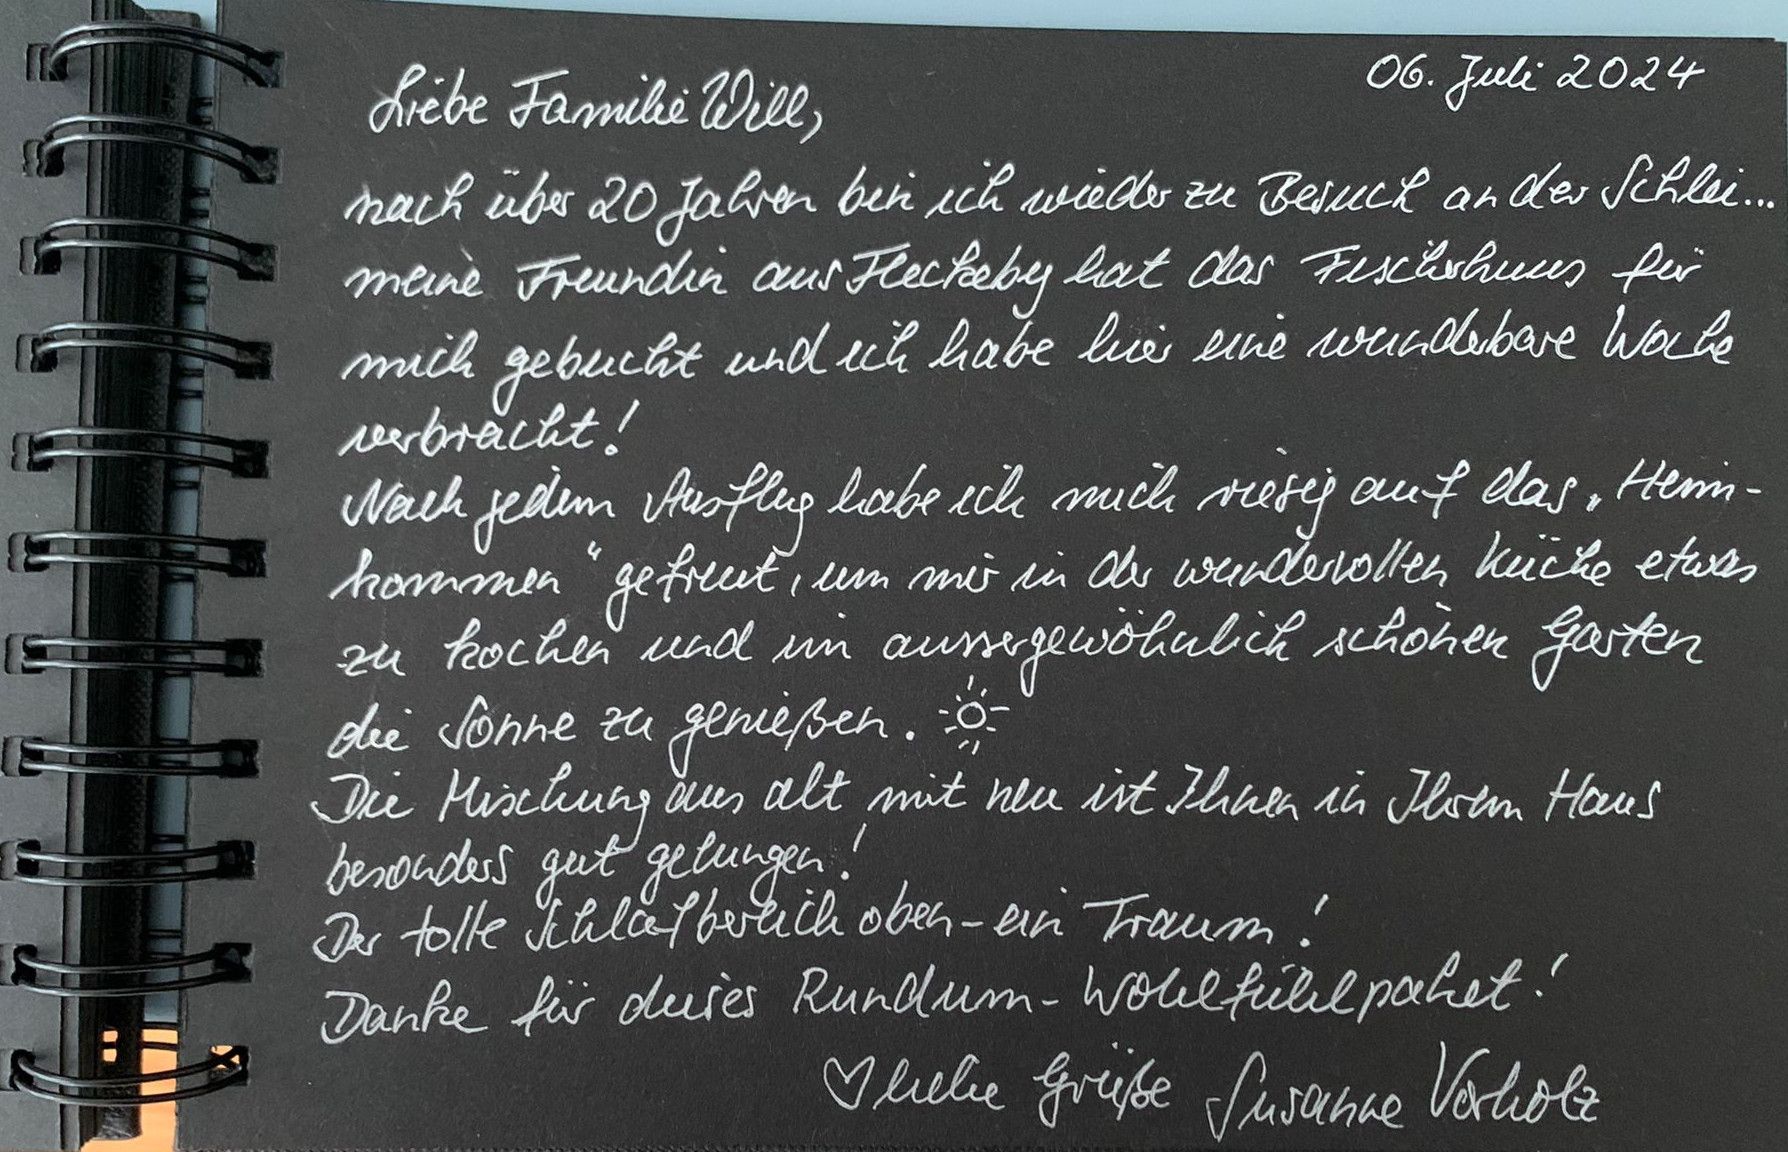 06. Juli 2024
Liebe Familie Will,
nach über 20 Jahren bin ich wieder zu Besuch an der Schlei...
meine Freundin aus Fleckeby hat das Fischerhuus für
mich gebucht und ich habe hier eine wunderbare Woche
verbracht!
Nach jedem Ausflug habe ich mich riesig auf das „Heim-
kommen“ gefreut, um mir in der wundervollen Küche etwas
zu kochen und im aussergewöhnlich schönen Garten
die Sonne zu genießen.
Die Mischung aus alt mit neu ist Ihnen in Ihrem Haus
besonders gut gelungen!
Der tolle Schlafbereich oben - ein Traum!
Danke für dieses Rundum-Wohlfühlpaket!
liebe Grüße Susanne Vorholz